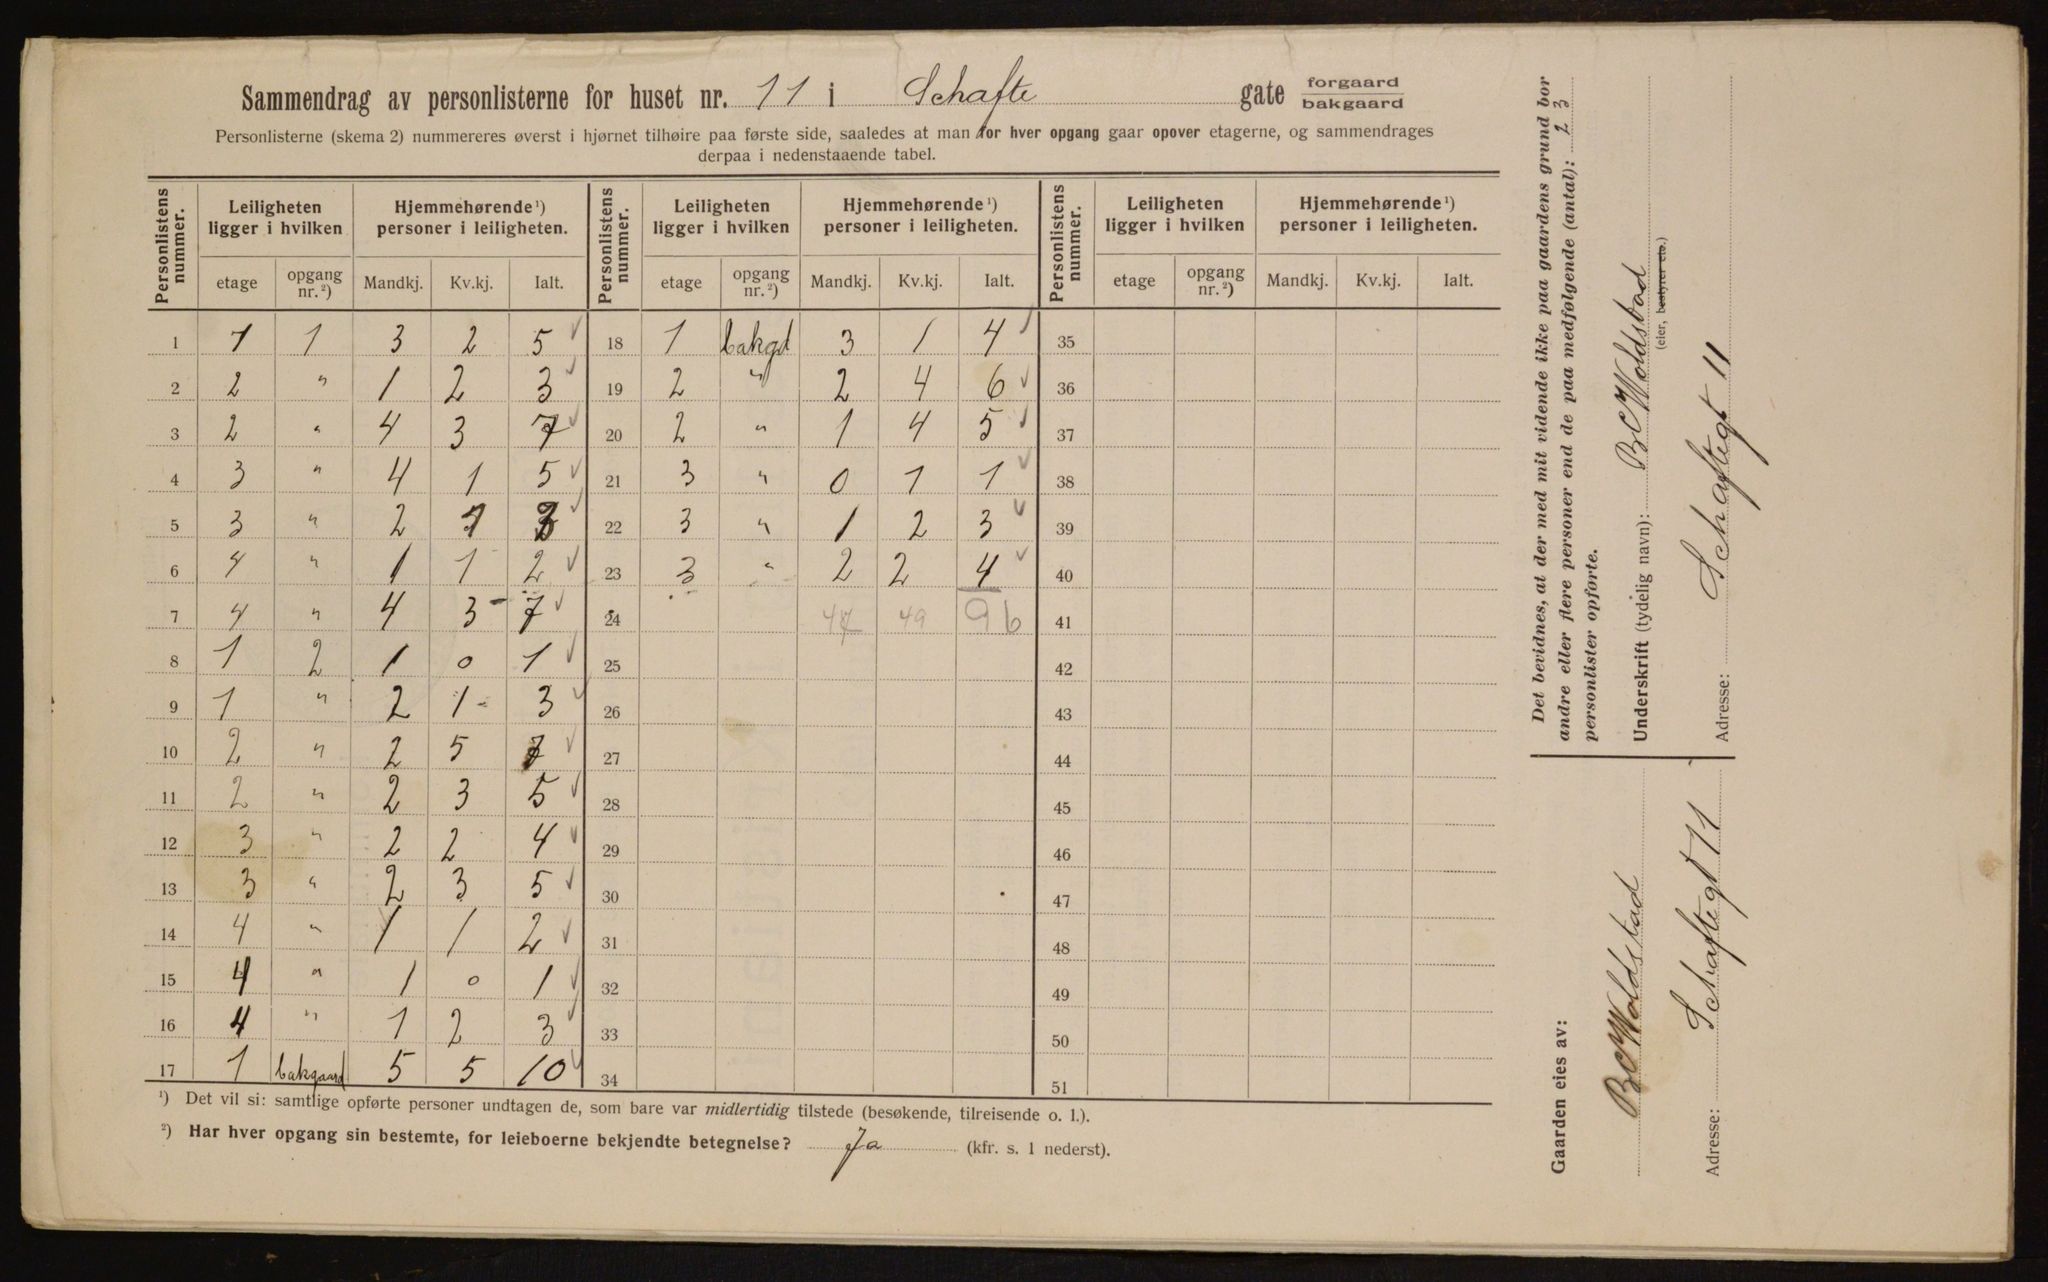 Sammendrag av personlisterne for huset nr. 11 i Schafte gate forgaard bakgaard
Personlisterne (skema 2) nummereres øverst i hjørnet tilhøire paa første side, saaledes at man for hver opgang gaar opover etagerne, og sammendrages
derpaa i nedenstaaende tabel.
Personlistens nummer. Leiligheten ligger i hvilken Hjemmehørende ¹) personer i leiligheten. Personlistens nummer. Leiligheten ligger i hvilken Hjemmehørende ¹) personer i leiligheten. Personlistens nummer. Leiligheten ligger i hvilken Hjemmehørende ¹) personer i leiligheten.
etage opgang nr.²) Mandkj. Kv.kj. Ialt. etage opgang nr.²) Mandkj. Kv.kj. Ialt. etage opgang nr.²) Mandkj. Kv.kj. Ialt.
1 1 1 3 2 5 18 1 bakgd 3 1 4 35
2 2 " 1 2 3 19 2 " 2 4 6 36
3 2 " 4 3 7 20 2 " 1 4 5 37
4 3 " 4 1 5 21 3 " 0 1 1 38
5 3 " 2 1 3 22 3 " 1 2 3 39
6 4 " 1 1 2 23 3 " 2 2 4 40
7 4 " 4 3 7 24 47 49 96 41
8 1 2 1 0 1 25 42
9 1 " 2 1 3 26 43
10 2 " 2 5 7 27 44
11 2 " 2 3 5 28 45
12 3 " 2 2 4 29 46
13 3 " 2 3 5 30 47
14 4 " 1 1 2 31 48
15 4 " 1 0 1 32 49
16 4 " 1 2 3 33 50
17 1 bakgaard 5 5 10 34 51
¹) Det vil si: samtlige opførte personer undtagen de, som bare var midlertidig tilstede (besøkende, tilreisende o. l.).
²) Har hver opgang sin bestemte, for leieboerne bekjendte betegnelse? Ja (kfr. s. 1 nederst).
Det bevidnes, at der med mit vidende ikke paa gaardens grund bor
andre eller flere personer end de paa medfølgende (antal): 23
personlister opførte.
Underskrift (tydelig navn): BC Woldstad
(eier, bestyrer etc.)
Adresse: Schaftegt 11
Gaarden eies av:
BC Woldstad
Adresse: Schaftegt 11